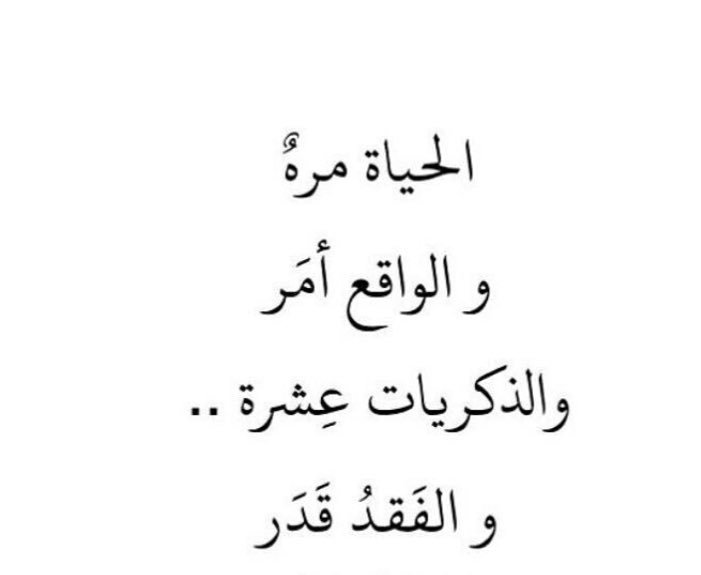 الحياة مرهٌ
و الواقع أمَر
والذكريات عِشرة ..
و الفَقدُ قَدَر